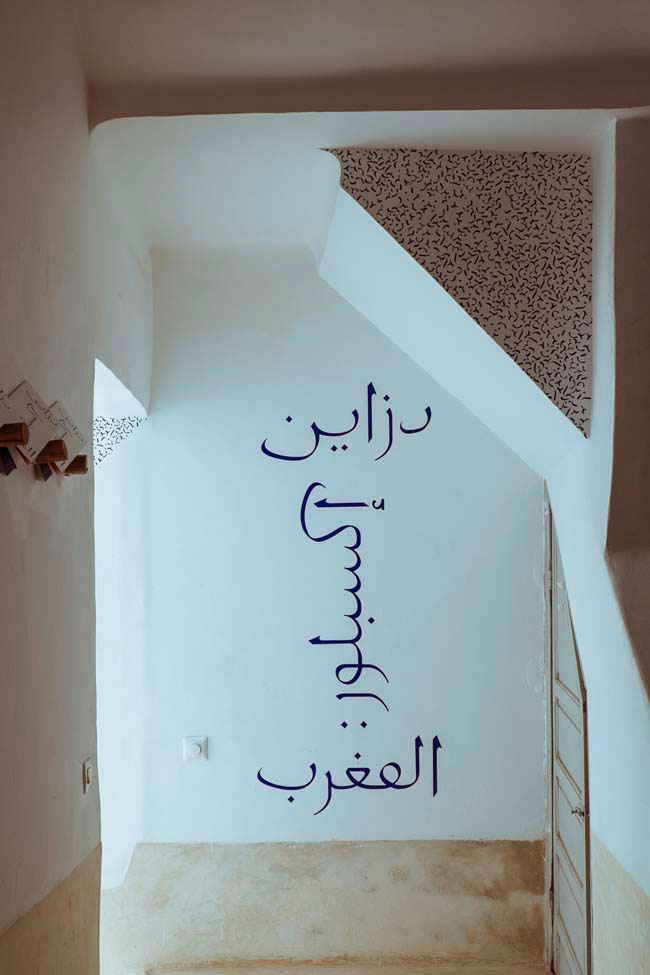 دزاين
إكسبلورر:
المغرب